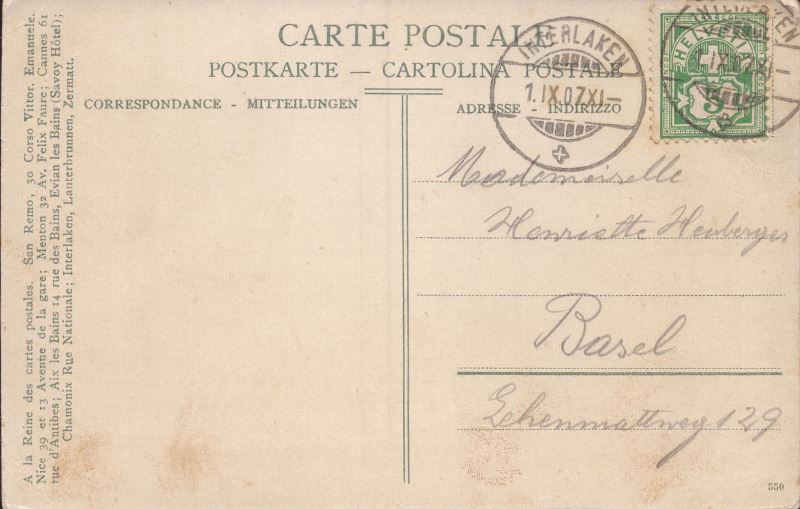 CARTE POSTALE
POSTKARTE — CARTOLINA POSTALE
CORRESPONDANCE - MITTEILUNGEN
ADRESSE - INDIRIZZO
INTERLAKEN
1.IX.07.XI—
INTERLAKEN
1.IX.07.XI—
HELVETIA
5
Mademoiselle
Henriette Heuberger
Basel
Lehenmattweg 129
A la Reine des cartes postales. San Remo, 30 Corso Vittor. Emanuele.
Nice 39 et 13 Avenue de la gare; Menton 32 Av. Felix Faure; Cannes 61
rue d'Antibes; Aix les Bains 14 rue des Bains, Evian les Bains (Savoy Hôtel);
Chamonix Rue Nationale; Interlaken, Lauterbrunnen, Zermatt.
550